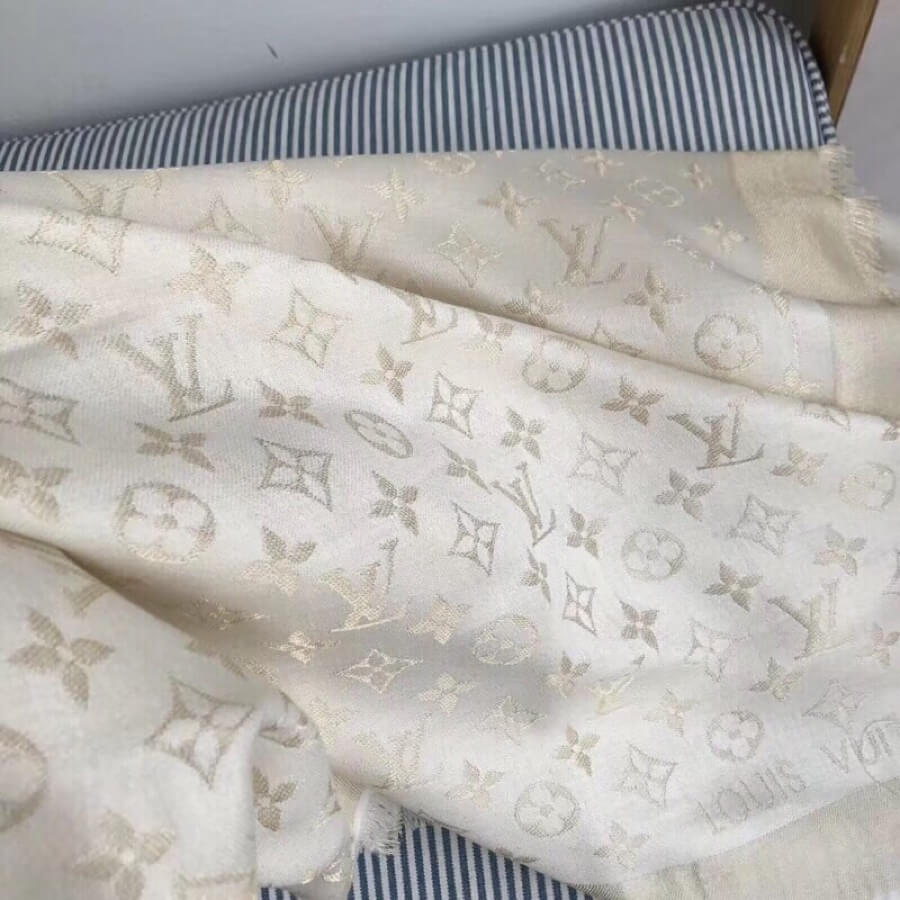 LOUIS VUI